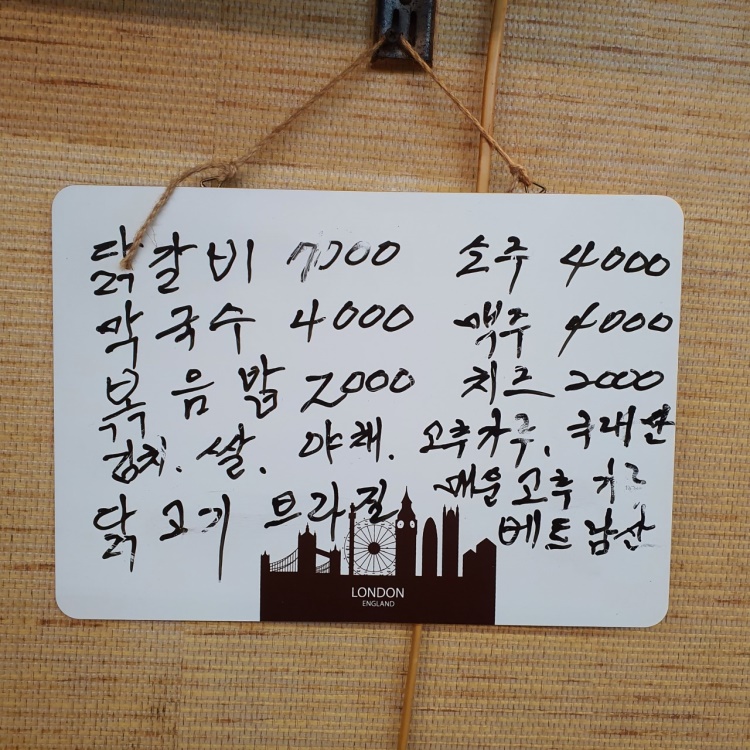 닭갈비 7000 소주 4000
막국수 4000 맥주 4000
볶음밥 2000 치즈 2000
김치. 쌀. 야채. 고추가루. 국내산
매운 고추 가루
닭고기 브라질 베트남산
LONDON
ENGLAND